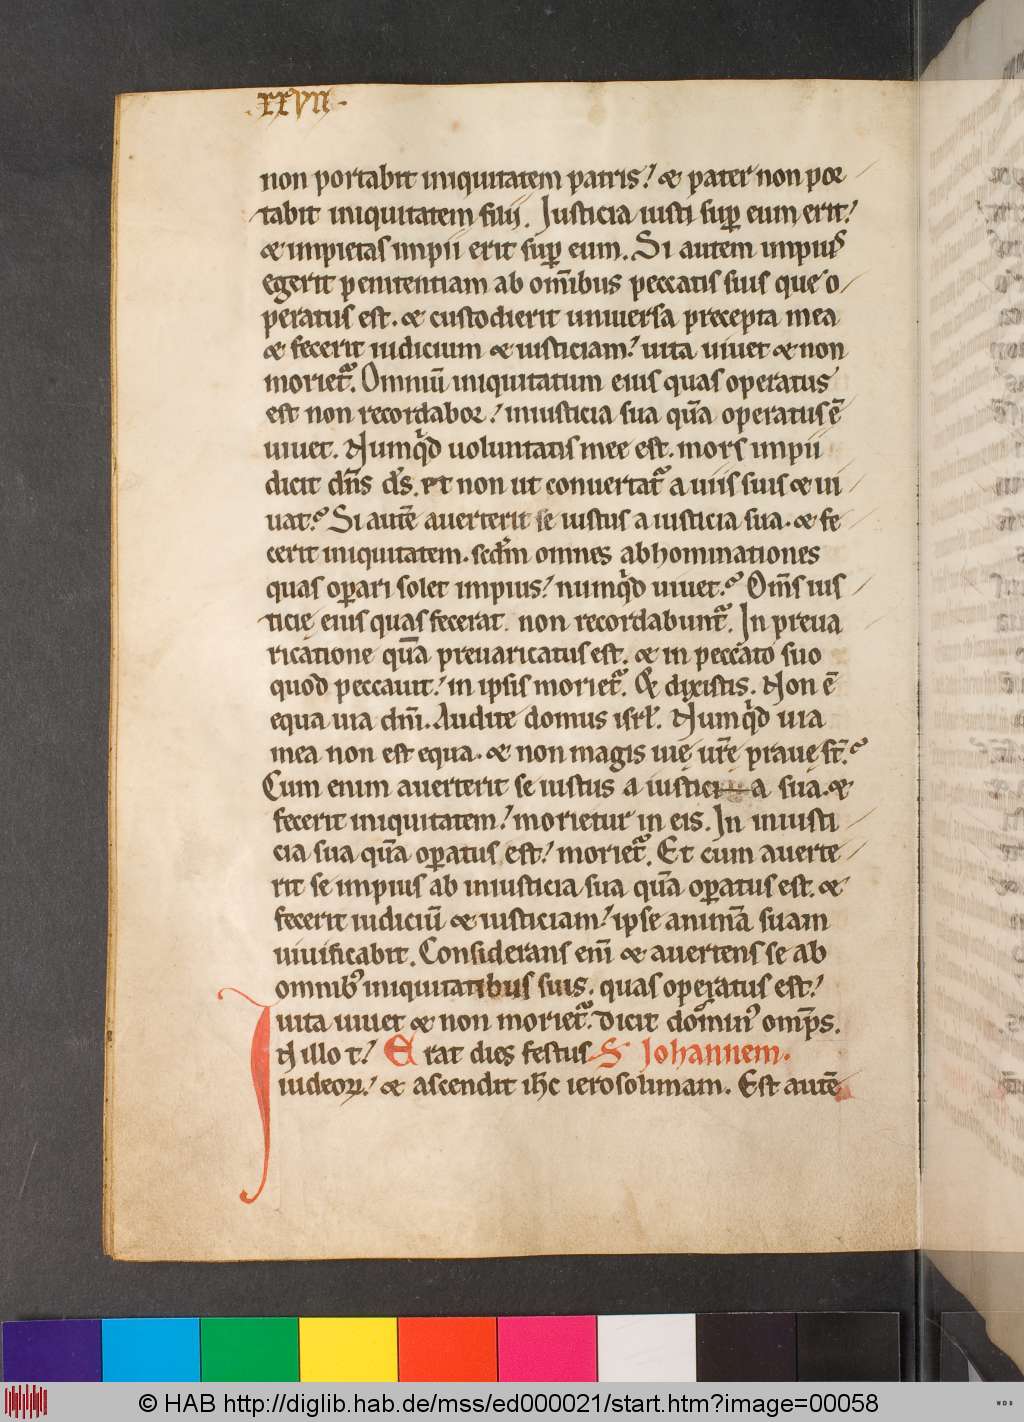 .xxvii.
non portabit iniquitatem patris! & pater non por
tabit iniquitatem filij. Justicia iusti sup̲ eum erit!
& impietas impii erit sup̲ eum. Si autem impius
egerit penitentiam ab om̅ibus peccatis suis que o
peratus est. & custodierit uniuersa precepta mea
& fecerit iudicium & iusticiam! uita uiuet & non
moriet᷑. Omniu̅ iniquitatum eius quas operatus
est non recordabor! in iusticia sua qua̅ operatus e̅
uiuet. Numqͥd uoluntatis mee est. mors impii
dicit dn̅s ds̅. et non ut conuertat᷑ a uiis suis & ui
uat? Si aute̅ auerterit se iustus a iusticia sua. & fe
cerit iniquitatem. scd̅m omnes abhominationes
quas op̲ari solet impius! numqͥd uiuet? Om̅s ius
ticię eius quas fecerat. non recordabunt᷑. In preua
ricatione qua̅ preuaricatus est. & in peccato suo
quod peccauit! in ipsis moriet᷑. Et dixistis. Non e̅
equa uia dn̅i. Audite domus isrł. Numqͥd uia
mea non est equa. & non magis uię ur̅e praue st̅?
Cum enim auerterit se iustus a iusticia sua. &
fecerit iniquitatem! morietur in eis. In iniusti
cia sua qua̅ op̲atus est! moriet᷑. Et cum auerte
rit se impius ab iniusticia sua qua̅ op̲atus est. &
fecerit iudiciu̅ & iusticiam! ipse anima̅ suam
uiuificabit. Considerans eni̅ & auertens se ab
omnibꝰ iniquitatibus suis. quas operatus est!
uita uiuet & non moriet᷑. dicit dominꝰ omp̅s.
IN illo t! Erat dies festus S Johannem.
iudeoꝝ! & ascendit ihc ierosolimam. Est aute̅
© HAB http://diglib.hab.de/mss/ed000021/start.htm?image=00058